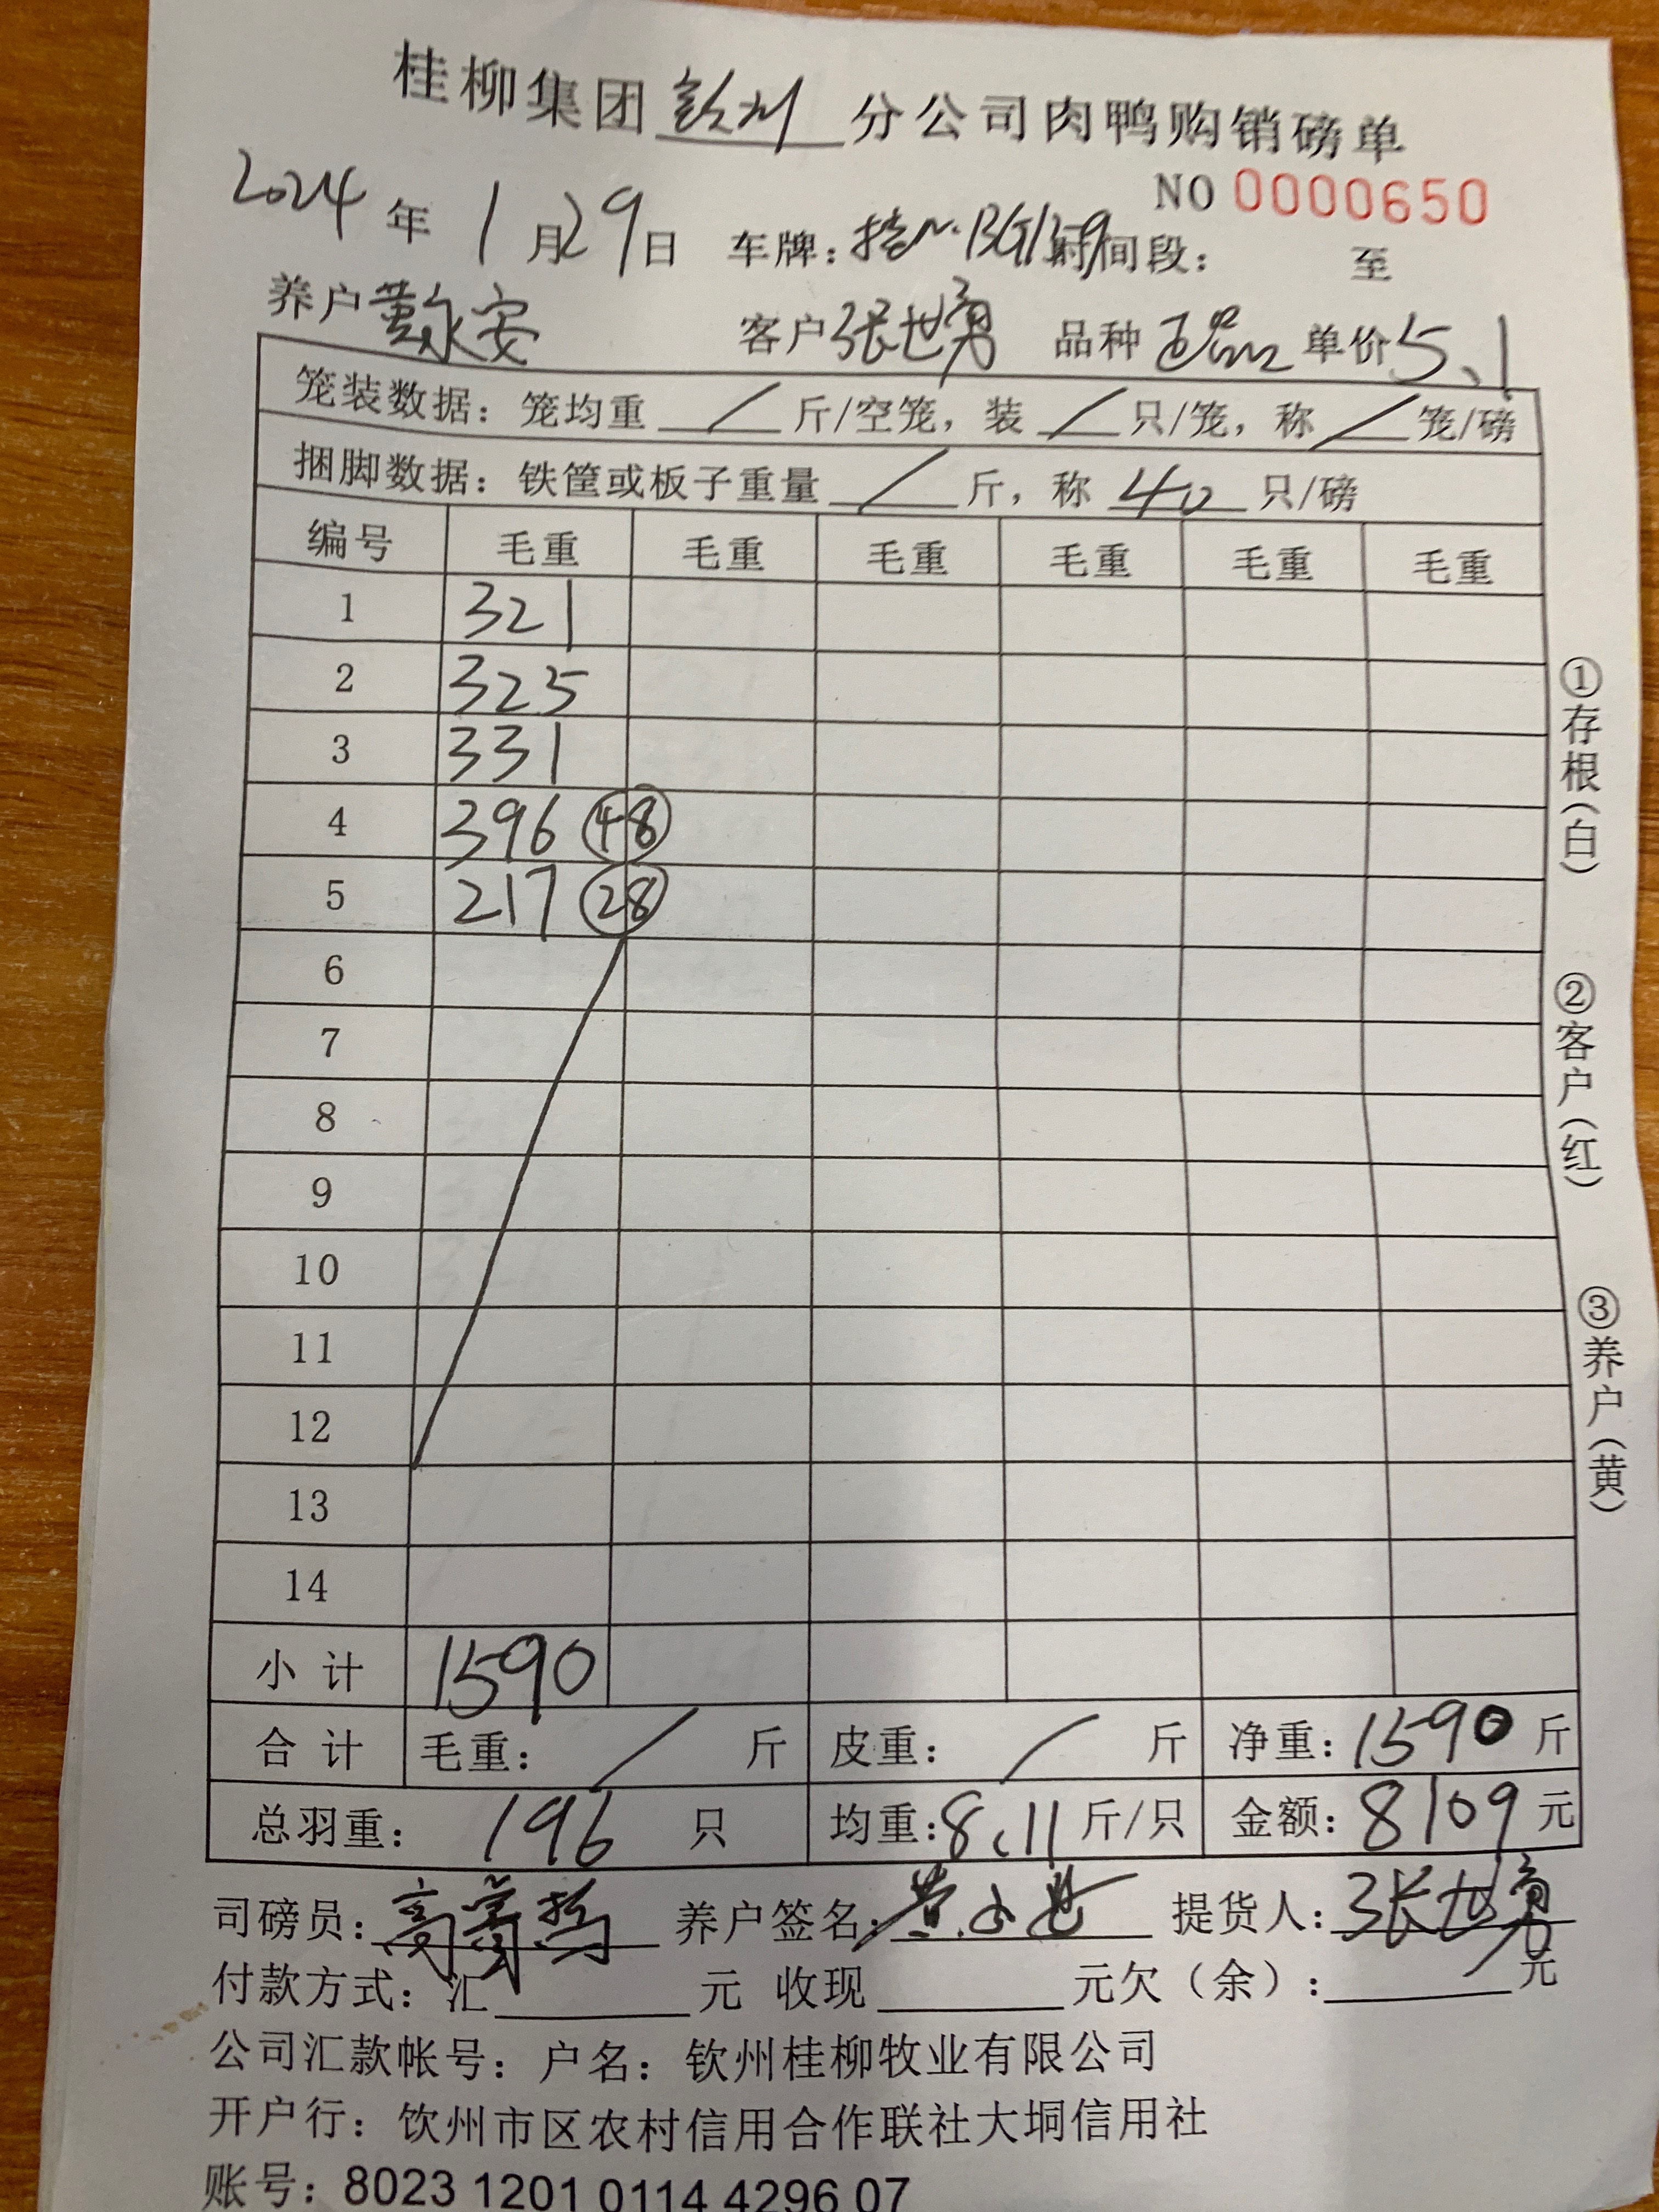 桂柳集团钦州分公司肉鸭购销磅单
NO 0000650
2024年1月29日 车牌：桂N·BG1359 时间段： 至
养户黄永安 客户张世勇 品种 单价5.1
笼装数据：笼均重 / 斤/空笼，装 / 只/笼，称 / 笼/磅
捆脚数据：铁筐或板子重量 / 斤，称 40 只/磅
编号 毛重 毛重 毛重 毛重 毛重 毛重
1 321
2 325
3 331
4 396 48
5 217 28
6
7
8
9
10
11
12
13
14
小计 1590
合计 毛重： / 斤 皮重： / 斤 净重：1590斤
总羽重： 196 只 均重：8.11斤/只 金额：8109元
司磅员： 养户签名： 提货人：张世勇
付款方式：汇 元 收现 元欠（余）： 元
公司汇款帐号：户名：钦州桂柳牧业有限公司
开户行：钦州市区农村信用合作联社大垌信用社
账号：8023 1201 0114 4296 07
①存根（白）
②客户（红）
③养户（黄）